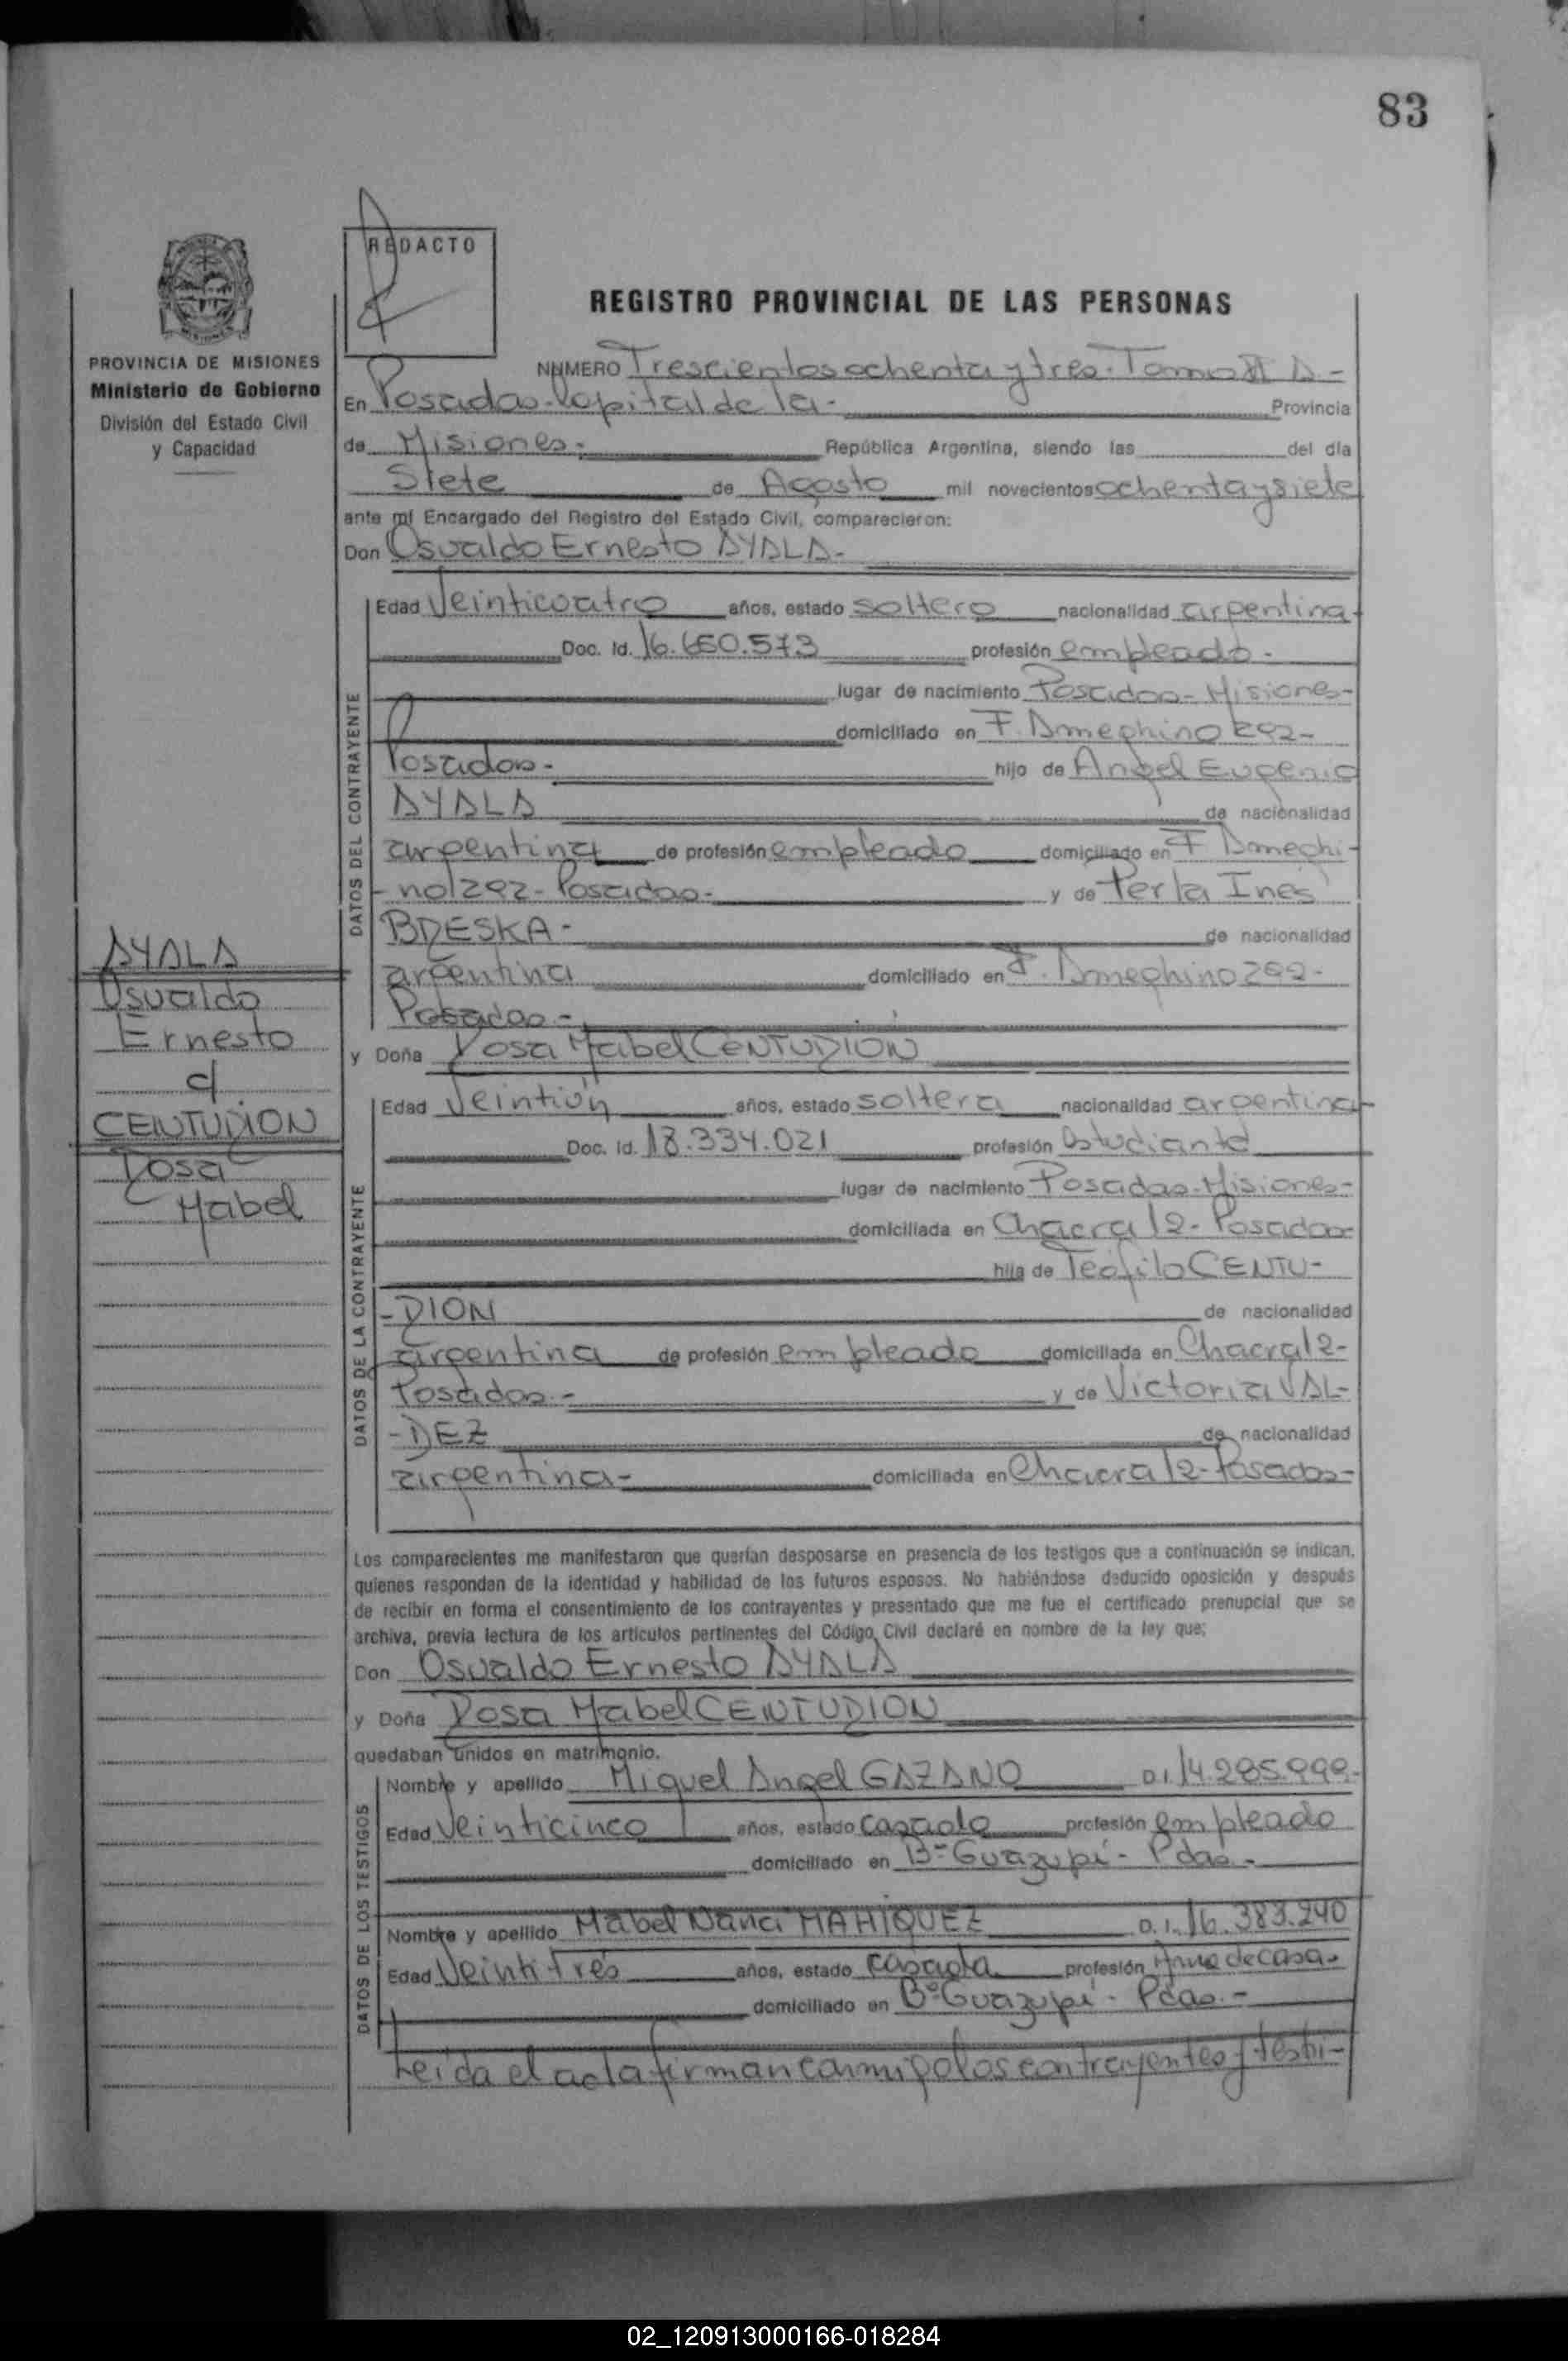 83
REDACTO
REGISTRO PROVINCIAL DE LAS PERSONAS
PROVINCIA DE MISIONES
Ministerio de Gobierno
División del Estado Civil
y Capacidad
NUMERO Trescientos ochenta y tres - Tomo II A -
En Posadas - Capital de la - Provincia
de Misiones - República Argentina, siendo las del día
Siete de Agosto mil novecientos ochenta y siete
ante mí Encargado del Registro del Estado Civil, comparecieron:
Don Osvaldo Ernesto AYALA -
DATOS DEL CONTRAYENTE
Edad Veinticuatro años, estado soltero nacionalidad argentina -
Doc. Id. 16.650.573 profesión empleado -
lugar de nacimiento Posadas - Misiones -
domiciliado en F. Ameghino 292 -
Posadas - hijo de Angel Eugenio
AYALA de nacionalidad
argentina de profesión empleado domiciliado en F Ameghi -
- no 292 - Posadas - y de Perla Ines
BRESKA - de nacionalidad
argentina domiciliado en F. Ameghino 292 -
Posadas -
y Doña Rosa Mabel CENTURION
AYALA
Osvaldo
Ernesto
c/
CENTURION
Rosa
Mabel
DATOS DE LA CONTRAYENTE
Edad Veintiún años, estado soltera nacionalidad argentina -
Doc. Id. 18.334.021 profesión Estudiante
lugar de nacimiento Posadas - Misiones -
domiciliada en Chacra 12 - Posadas
hija de Teofilo CENTU -
- RION de nacionalidad
argentina de profesión empleado domiciliada en Chacra 12 -
Posadas - y de Victoria VAL -
- DEZ de nacionalidad
argentina - domiciliada en Chacra 12 - Posadas -
Los comparecientes me manifestaron que querían desposarse en presencia de los testigos que a continuación se indican,
quienes responden de la identidad y habilidad de los futuros esposos. No habiéndose deducido oposición y después
de recibir en forma el consentimiento de los contrayentes y presentado que me fue el certificado prenupcial que se
archiva, previa lectura de los artículos pertinentes del Código Civil declaré en nombre de la ley que:
Don Osvaldo Ernesto AYALA
y Doña Rosa Mabel CENTURION
quedaban unidos en matrimonio.
DATOS DE LOS TESTIGOS
Nombre y apellido Miguel Angel GAZANO D.I. 14.285.999 -
Edad Veinticinco años, estado casado profesión empleado
domiciliado en Bº Guazupí - Pdas -
Nombre y apellido Mabel Nanci MAHIQUEZ D.I. 16.383.240
Edad Veintitrés años, estado casada profesión Ama de casa -
domiciliado en Bº Guazupí - Pdas. -
Leída el acta firman conmigo los contrayentes y testi -
02_120913000166-018284